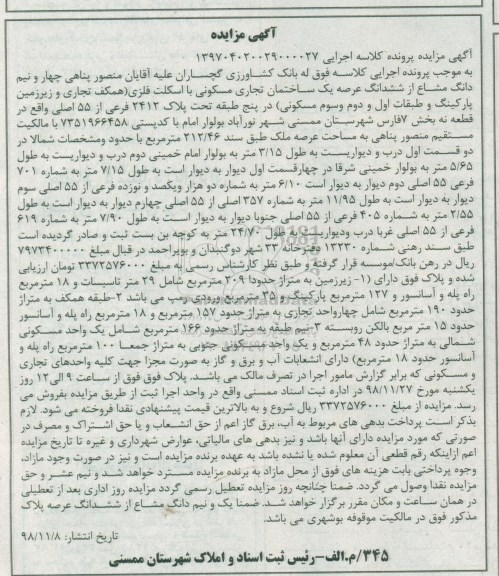 آگهی مزایده
آگهی مزایده پرونده کلاسه اجرایی ۱۳۹۷۰۴۰۲۰۰۲۹۰۰۰۰۲۷
به موجب پرونده اجرایی کلاسه فوق له بانک کشاورزی گچساران علیه آقایان منصور پناهی چهار و نیم
دانگ مشاع از ششدانگ عرصه یک ساختمان تجاری مسکونی با اسکلت فلزی(همکف تجاری و زیرزمین
پارکینگ و طبقات اول و دوم وسوم مسکونی) در پنج طبقه تحت پلاک ۲۴۱۲ فرعی از ۵۵ اصلی واقع در
قطعه نه بخش ۷فارس شهرستان ممسنی شهر نورآباد بولوار امام با کدپستی ۷۳۵۱۹۶۶۴۵۸ با مالکیت
مستقیم منصور پناهی به مساحت عرصه ملک طبق سند ۲۱۲/۴۶ مترمربع با حدود ومشخصات شمالا در
دو قسمت اول درب و دیواریست به طول ۳/۱۵ متر به بولوار امام خمینی دوم درب و دیواریست به طول
۵/۶۵ متر به بولوار خمینی شرقا در چهارقسمت اول دیوار به دیوار است به طول ۷/۱۵ متر به شماره ۷۰۱
فرعی ۵۵ اصلی دوم دیوار به دیوار است ۶/۱۰ متر به شماره دو هزار ویکصد و نوزده فرعی از ۵۵ اصلی سوم
دیوار به دیوار است به طول ۱۱/۹۵ متر به شماره ۳۵۷ اصلی از ۵۵ اصلی چهارم دیوار به دیوار است به طول
۲/۵۵ متر به شماره ۴۰۵ فرعی از ۵۵ اصلی جنوبا دیوار به دیوار است به طول ۷/۹۰ متر به شماره ۶۱۹
فرعی از ۵۵ اصلی غربا درب ودیواریست به طول ۲۴/۷۰ متر به کوچه بن بست ثبت و صادر گردیده است
طبق سند رهنی شماره ۱۳۳۳۰ دفترخانه ۳۳ شهر دوگنبدان و بویراحمد در قبال مبلغ ۷۹۷۳۴۰۰۰۰۰
ریال در رهن بانک/موسسه قرار گرفته و طبق نظر کارشناس رسمی به مبلغ ۳۳۷۲۵۷۶۰۰۰ تومان ارزیابی
شده و پلاک فوق دارای (۱- زیرزمین به متراژ حدودا ۲۰۹ مترمربع شامل ۲۹ متر تاسیسات و ۱۸ مترمربع
راه پله و آسانسور و ۱۲۷ مترمربع پارکینگ و ۳۵ مترمربع ورودی رمپ می باشد ۲-طبقه همکف به متراژ
حدود ۱۹۰ مترمربع شامل چهارواحد تجاری به متراژ حدود ۱۵۷ مترمربع و ۱۸ مترمربع راه پله و آسانسور
حدود ۱۵ متر مربع بالکن روبسته ۳-نیم طبقه به متراژ حدود ۱۶۶ مترمربع شامل یک واحد مسکونی
شمالی به متراژ حدود ۴۸ مترمربع و یک واحد مسکونی جنوبی به متراژ جمعا ۱۰۰ مترمربع راه پله و
آسانسور حدود ۱۸ مترمربع) دارای انشعابات آب و برق و گاز به صورت مجزا جهت کلیه واحدهای تجاری
و مسکونی که برابر گزارش مامور اجرا در تصرف مالک می باشد. پلاک فوق فوق از ساعت ۹ الی۱۲ روز
یکشنبه مورخ ۹۸/۱۱/۲۷ در اداره ثبت اسناد ممسنی واقع در واحد اجرا ثبت از طریق مزایده بفروش می
رسد. مزایده از مبلغ ۳۳۷۲۵۷۶۰۰۰ ریال شروع و به بالاترین قیمت پیشنهادی نقدا فروخته می شود. لازم
بذکر است پرداخت بدهی های مربوط به آب، برق گاز اعم از حق انشعاب و یا حق اشتراک و مصرف در
صورتی که مورد مزایده دارای آنها باشد و نیز بدهی های مالیاتی، عوارض شهرداری و غیره تا تاریخ مزایده
اعم ازاینکه رقم قطعی آن معلوم شده یا نشده باشد به عهده برنده مزایده است و نیز در صورت وجود مازاد،
وجوه پرداختی بابت هزینه های فوق از محل مازاد به برنده مزایده مسترد خواهد شد و نیم عشر و حق
مزایده نقدا وصول می گردد. ضمنا چنانچه روز مزایده تعطیل رسمی گردد مزایده روز اداری بعد از تعطیلی
در همان ساعت و مکان مقرر برگزار خواهد شد. ضمنا یک و نیم دانگ مشاع از ششدانگ عرصه پلاک
مذکور فوق در مالکیت موقوفه بوشهری می باشد.
تاریخ انتشار: ۹۸/۱۱/۸
۳۴۵/م.الف-رئیس ثبت اسناد و املاک شهرستان ممسنی